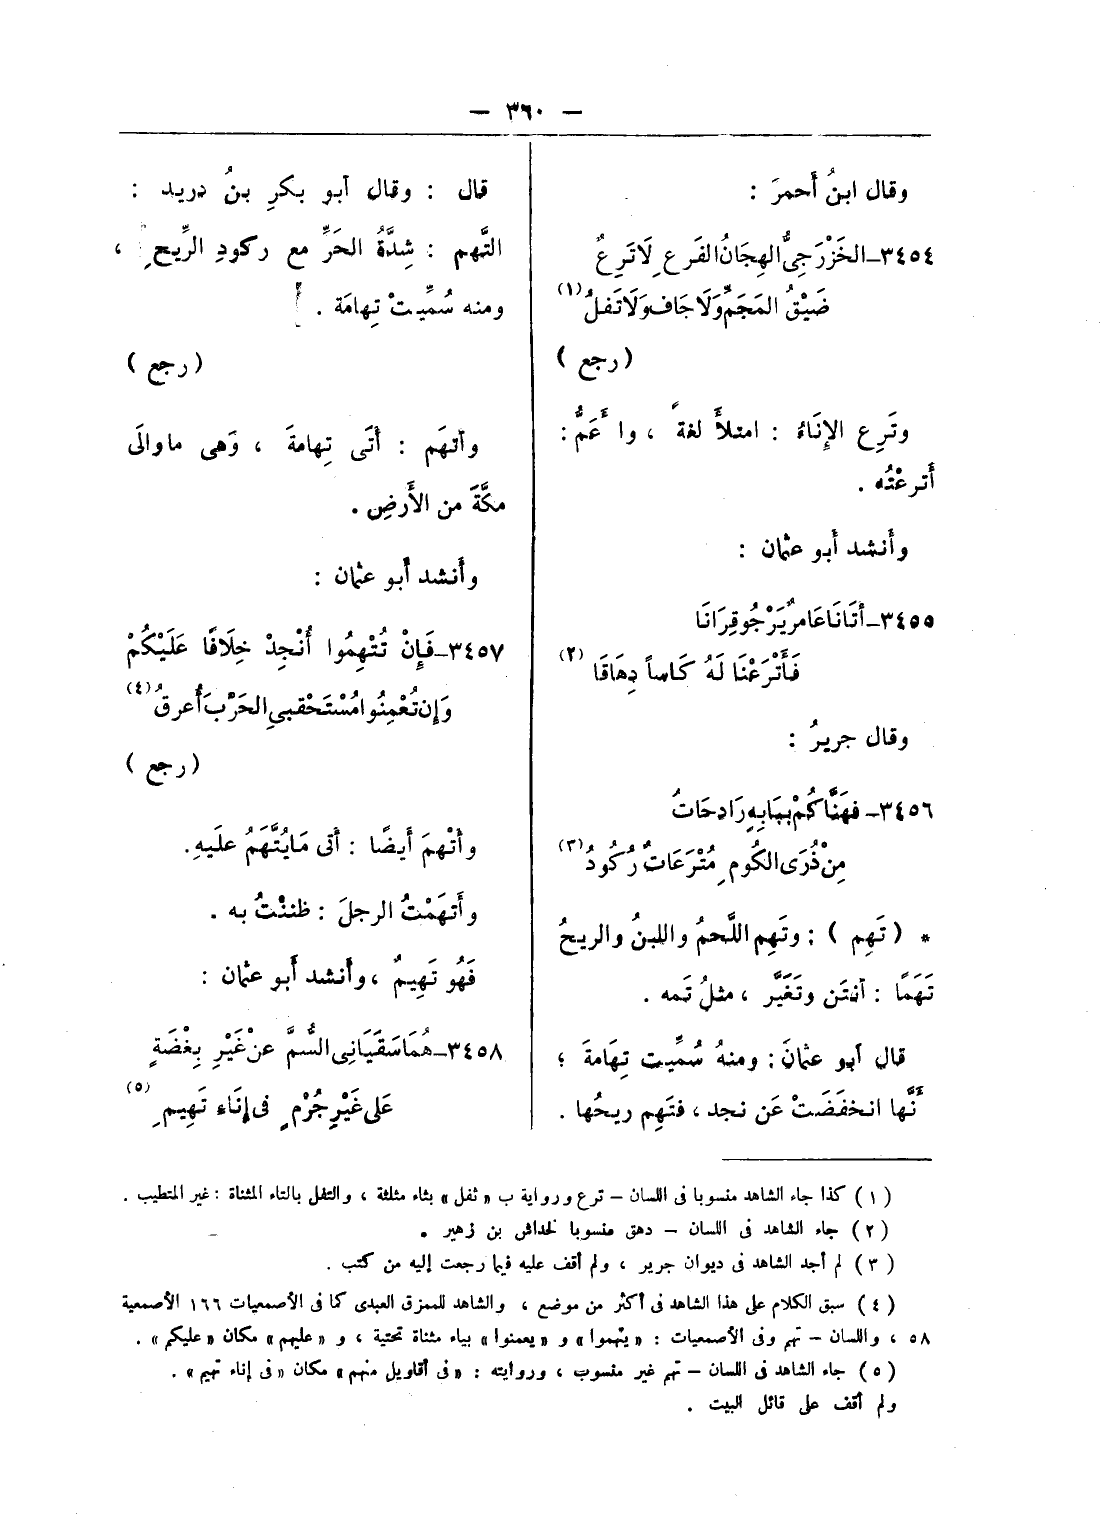 — ٣٦٠ —
وقال ابنُ أَحمرَ :
٣٤٥٤ـ الخَزْرَجِىُّ الهِجَانُ الفَرعِ لَا تَرِعٌ
ضَيْقُ المَجَمِّ وَلَا جَافٍ وَلَا تَفلُ (١)
( رجع )
وتَرِع الإِنَاءُ : امتلأَ لغةً ، وا عَمُّ :
أَترعْتُه .
وأَنشد أَبو عثمان :
٣٤٥٥ـ أَتَانَا عَامرٌ يَرْجُو قِرَانَا
فَأَتْرَعْنَا لَهُ كَاساً دِهَاقَا (٢)
وقال جريرُ :
٣٤٥٦ـ فهَنَّاكُمْ بِبَابِهِ رَادحَاتٌ
مِنْ ذُرَى الكُومِ مُتْرَعَاتٌ رُكُودُ (٣)
* ( تَهِم ) : وتَهِم اللَّحمُ واللبنُ والريحُ
تَهَمًا : أَنتَن وتَغَيَّر ، مثلُ تَمه .
قال أبو عثمانَ : ومنهُ سُمِّيت تِهَامةَ ؛
أَنَّها انخفَضَتْ عَن نجد ، فتَهِم ريحُها .
قال : وقال أبو بكرِ بنُ دريد :
التَّهم : شِدَّةُ الحَرِّ مع ركودِ الرِّيحِ ،
ومنه سُمِّيتْ تِهامَة .
( رجع )
وأَتهَم : أَتَى تِهامةَ ، وَهى ماوالَى
مكَّةَ من الأَرضِ .
وأَنشد أَبو عثمان :
٣٤٥٧ـ فَإِنْ تُتْهِمُوا أُنْجِدْ خِلَافًا عَلَيْكُمْ
وَإِن تُعْمِنُوا مُسْتَحْقبىِ الحَرْب أُعرقُ (٤)
( رجع )
وأَتْهمَ أَيضًا : أَتى مَايُتَّهَمُ علَيهِ .
وأَتهَمْتُ الرجلَ : ظننْتُ به .
فَهُو تَهِيمٌ ، وأَنشد أَبو عثمان :
٣٤٥٨ـ هُمَا سَقَيَانِى السُّمَّ عنْ غَيْرِ بِغْضَةٍ
عَلى غَيْرِ جُرْمٍ فى إِنَاء تَهِيمِ (٥)
( ١ ) كذا جاء الشاهد منسوبا فى اللسان – ترع ورواية ب « ثفل » بثاء مثلثة ، والتفل بالتاء المثناة : غير المتطيب .
( ٢ ) جاء الشاهد فى اللسان – دهق منسوبا لخداش بن زهير .
( ٣ ) لم أجد الشاهد فى ديوان جرير ، ولم أقف عليه فيما رجعت إليه من كتب .
( ٤ ) سبق الكلام على هذا الشاهد فى أكثر من موضع ، والشاهد للممزق العبدى كما فى الأصمعيات ١٦٦ الأصمعية
٥٨ ، واللسان – تهم وفى الأصمعيات : « يتهموا » و « يعمنوا » بياء مثناة تحتية ، و « عليهم » مكان « عليكم » .
( ٥ ) جاء الشاهد فى اللسان – تهم غير منسوب ، وروايته : « فى أقاويل منهم » مكان « فى إناء تهيم » .
ولم أقف على قائل البيت .